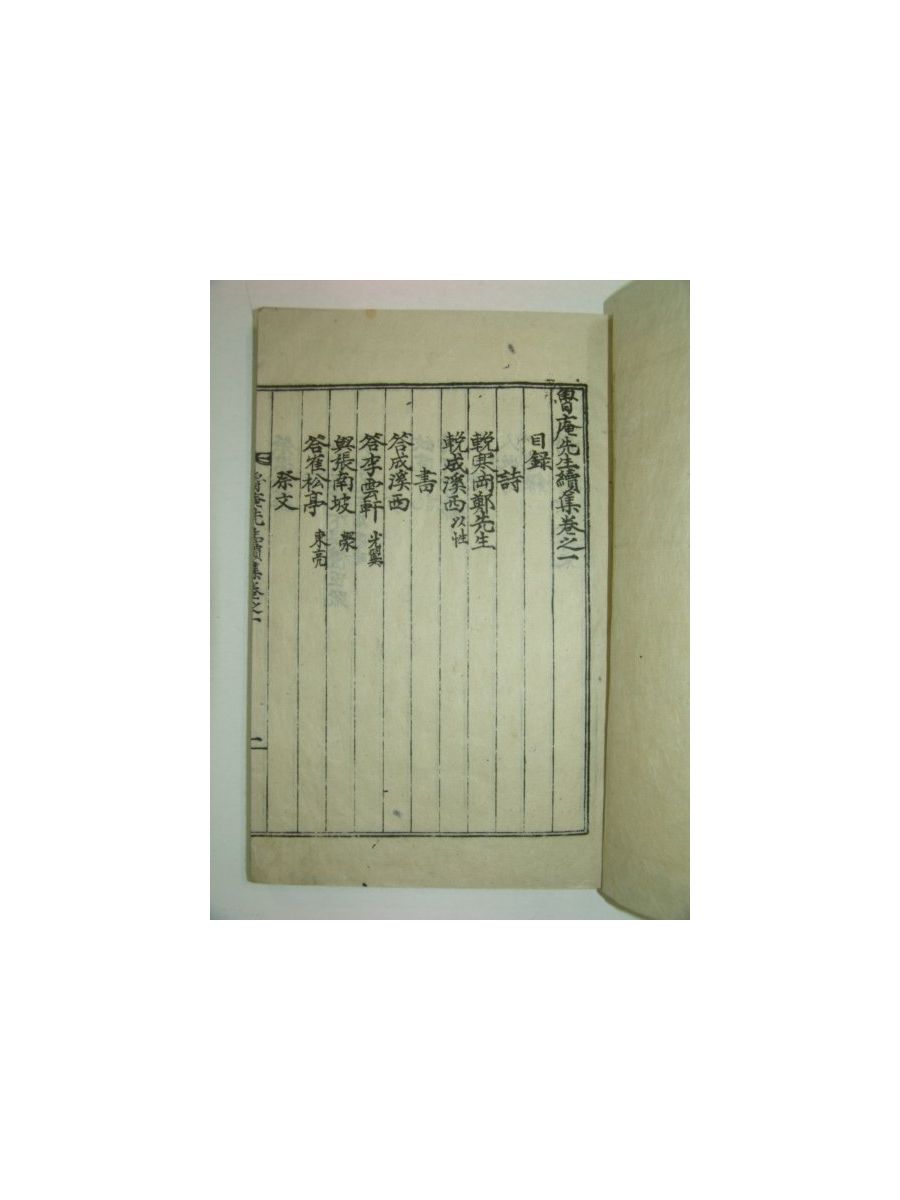 魯庵先生續集卷之一
目録
詩
輓寒岡鄭先生
輓成溪西 以性
書
答成溪西
答李雲軒 光翼
與張南坡 澩
答崔松亭 東亮
祭文
魯庵先生續集卷之一
一